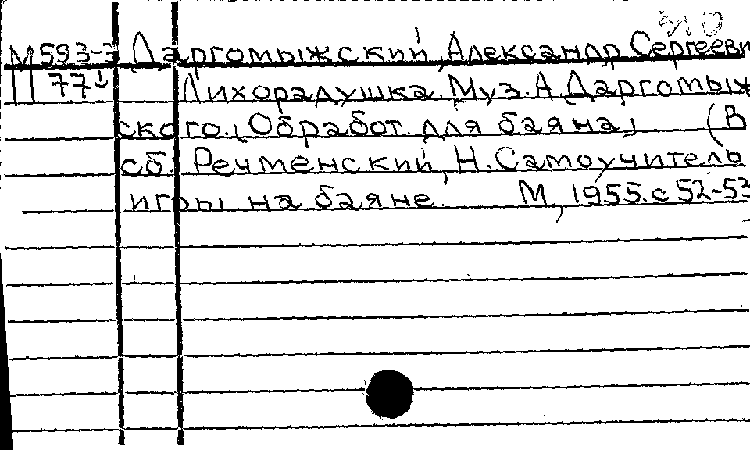 М593-3 Даргомыжский, Александр Сергееви
77 Лихорадушка. Муз. А. Даргомыж
ского. (Обработ. для баяна) (В
сб. Речменский, Н. Самоучитель
игры на баяне. М, 1955. с 52-53